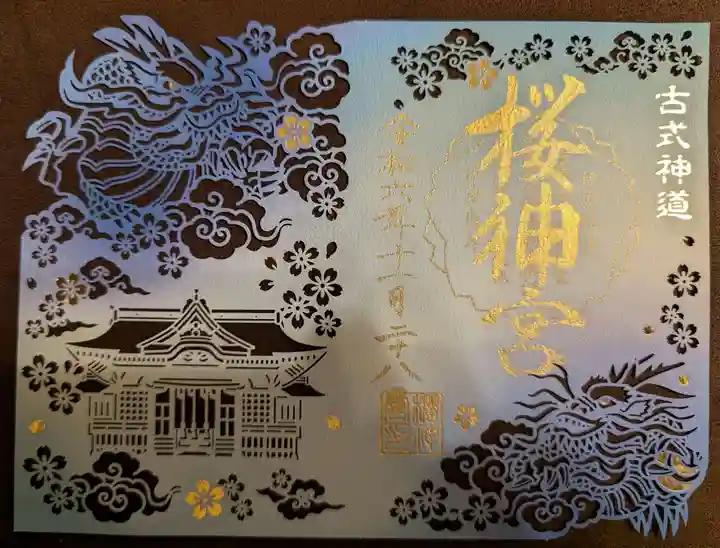 古式神道
桜神宮
令和六年十一月二十八